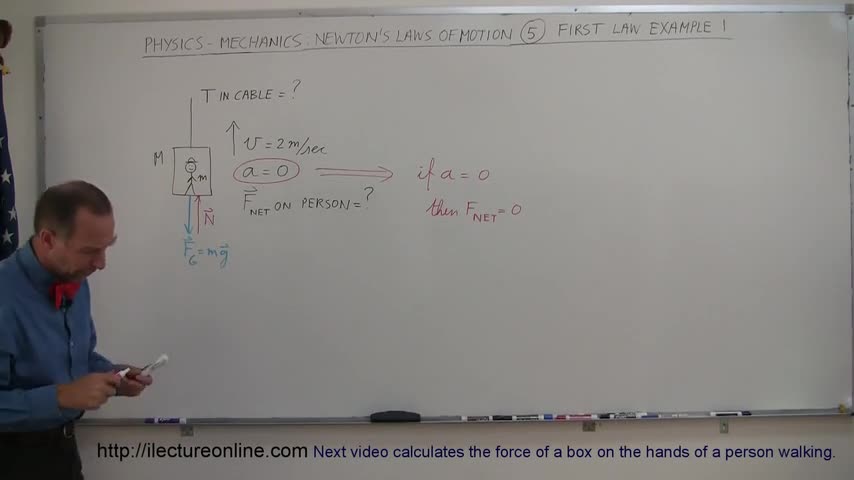 PHYSICS - MECHANICS: NEWTON'S LAWS OF MOTION (5) FIRST LAW EXAMPLE 1
T IN CABLE = ?
V = 2 m/sec
M
m
a = 0
if a = 0
F⃗NET ON PERSON = ?
then FNET = 0
N⃗
F⃗G = mg⃗
http://ilectureonline.com Next video calculates the force of a box on the hands of a person walking.